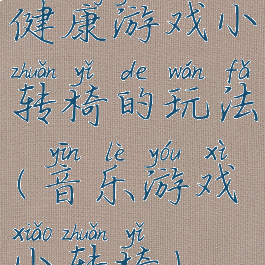 健康游戏小
zhuǎn yǐ de wán fǎ
转椅的玩法
yīn lè yóu xì
(音乐游戏
xiǎo zhuǎn yǐ
小转椅)